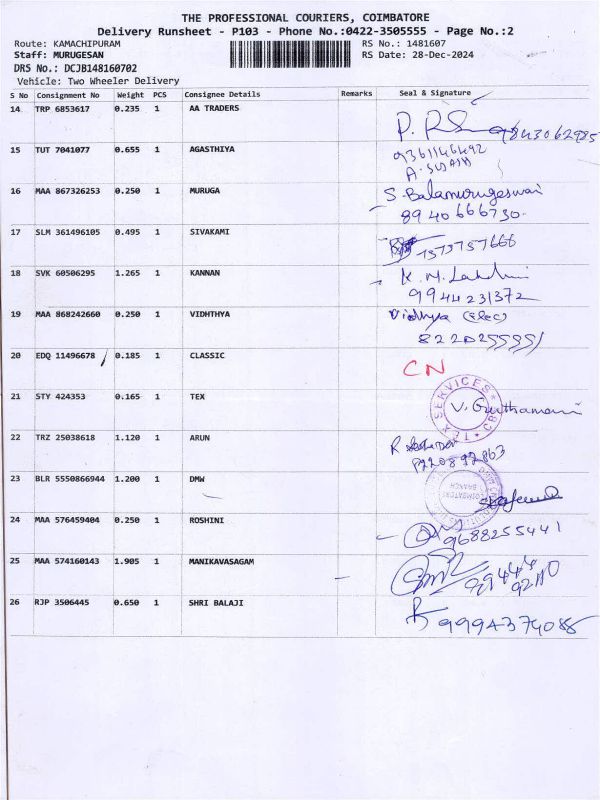 THE PROFESSIONAL COURIERS, COIMBATORE
Delivery Runsheet - P103 - Phone No.:0422-3505555 - Page No.:2
Route: KAMACHIPURAM RS No.: 1481607
Staff: MURUGESAN RS Date: 28-Dec-2024
DRS No.: DCJB148160702
Vehicle: Two Wheeler Delivery
S No Consignment No Weight PCS Consignee Details Remarks Seal & Signature
14 TRP 6853617 0.235 1 AA TRADERS
9843062985
15 TUT 7041077 0.655 1 AGASTHIYA 9361146492
16 MAA 867326253 0.250 1 MURUGA S. Balamurugeswari
8940666730.
17 SLM 361496105 0.495 1 SIVAKAMI 7373757666
18 SVK 60506295 1.265 1 KANNAN K. M. Lakshmi
9944231372
19 MAA 868242660 0.250 1 VIDHTHYA Vidhya (Elec)
20 EDQ 11496678 0.185 1 CLASSIC CN
21 STY 424353 0.165 1 TEX SERVICES CBE TEX
22 TRZ 25038618 1.120 1 ARUN
23 BLR 5550866944 1.200 1 DMW COIMBATORE BRANCH
24 MAA 576459404 0.250 1 ROSHINI 9688255441
25 MAA 574160143 1.905 1 MANIKAVASAGAM 89444
92110
26 RJP 3506445 0.650 1 SHRI BALAJI 9994374088